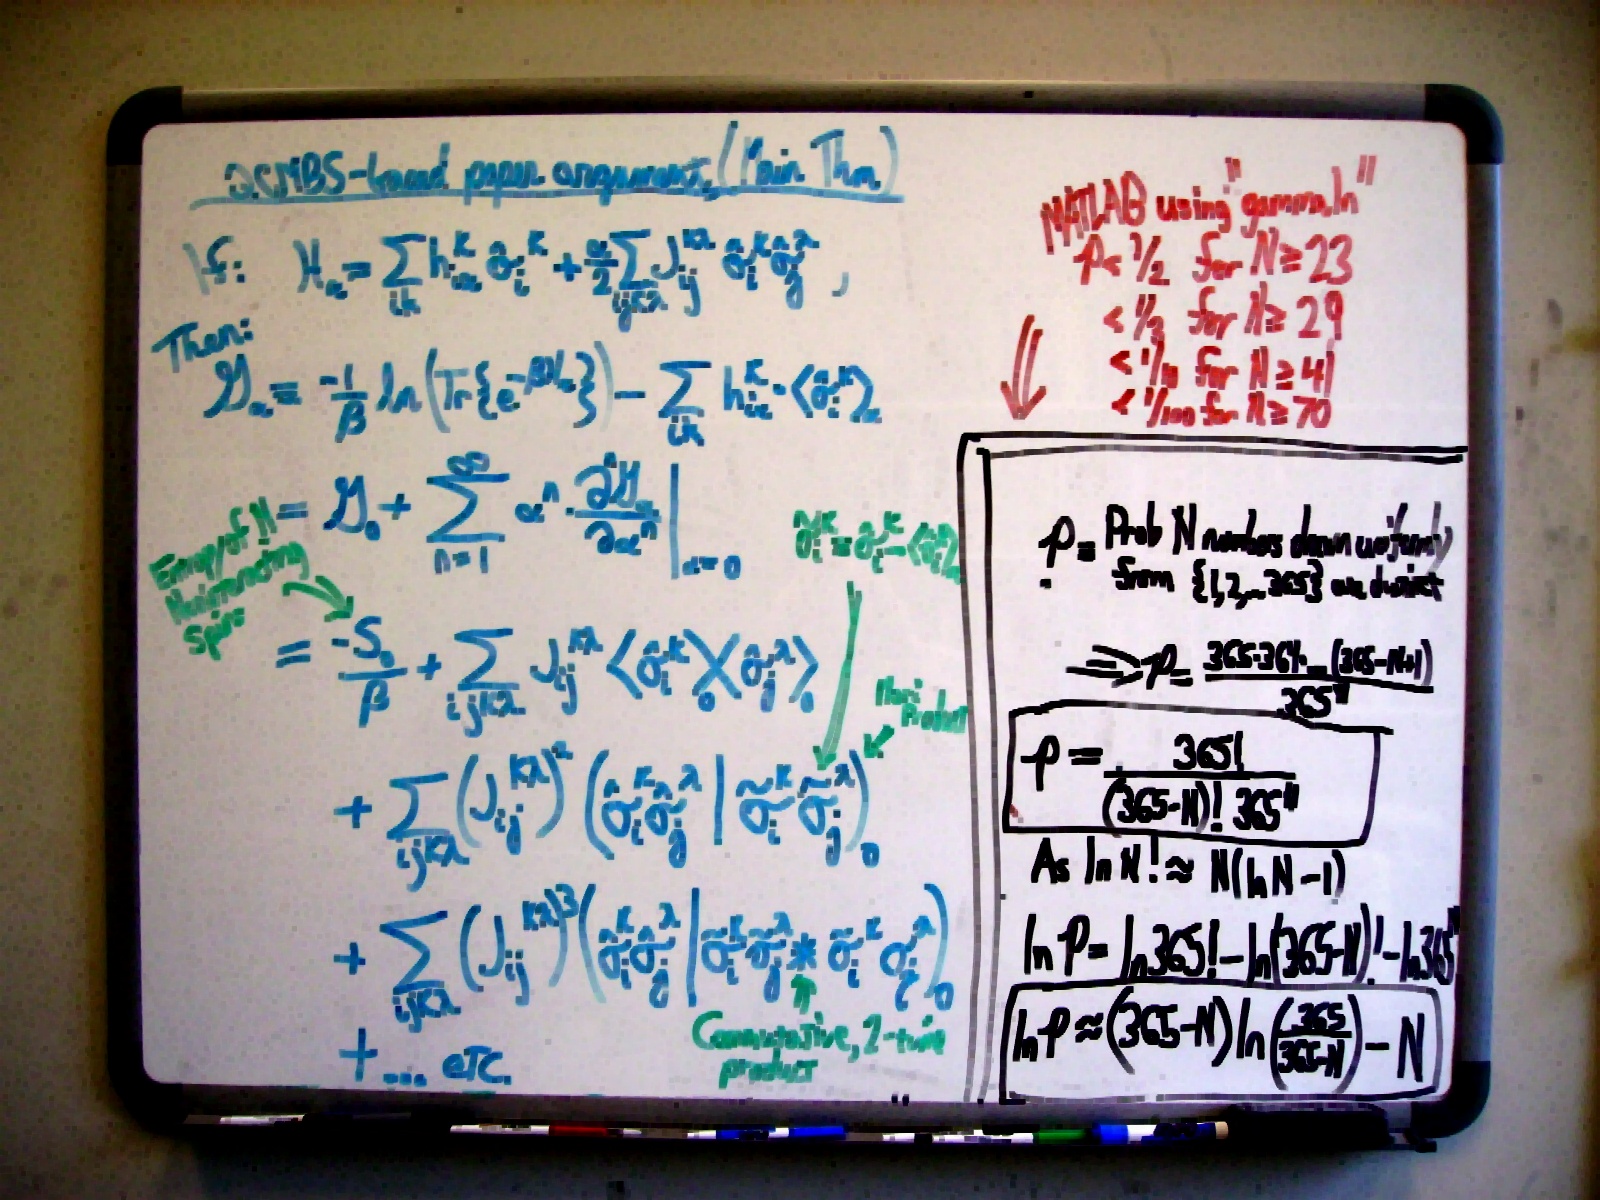 2CMBS-based paper argument, (Main Thm)
If: H_α = Σ_{ik} h_{iα}^k σ̂_i^k + α/2 Σ_{ijkλ} J_{ij}^{kλ} σ̂_i^k σ̂_j^λ ,
Then:
G_α = -1/β ln(Tr{e^{-βH_α}}) - Σ_{ik} h_{iα}^k · <σ̂_i^k>_α
= G_0 + Σ_{n=1}^∞ α^n · ∂^n G_α / ∂α^n |_{α=0}
Entropy of N
Noninteracting
Spins
= -S_0/β + Σ_{ijkλ} J_{ij}^{kλ} <σ̂_i^k>_0 <σ̂_j^λ>_0
σ̃_i^k = σ̂_i^k - <σ̂_i^k>_α
Mori
Product
+ Σ_{ijkλ} (J_{ij}^{kλ})^2 (σ̂_i^k σ̂_j^λ | σ̃_i^k σ̃_j^λ)_0
+ Σ_{ijkλ} (J_{ij}^{kλ})^3 (σ̂_i^k σ̂_j^λ | σ̃_i^k σ̃_j^λ * σ̃_i^k σ_j^λ)_0
Commutative, 2-time
product
+ ... etc.
MATLAB using "gammaln"
P < 1/2 for N ≥ 23
< 1/3 for N ≥ 29
< 1/10 for N ≥ 41
< 1/100 for N ≥ 70
P = Prob N numbers drawn uniformly
from {1,2,...365} are distinct
⇒ P = 365·364...(365-N+1) / 365^N
P = 365! / (365-N)! 365^N
As ln N! ≈ N(ln N - 1)
ln P = ln 365! - ln(365-N)! - ln 365^N
ln P ≈ (365-N) ln(365/(365-N)) - N